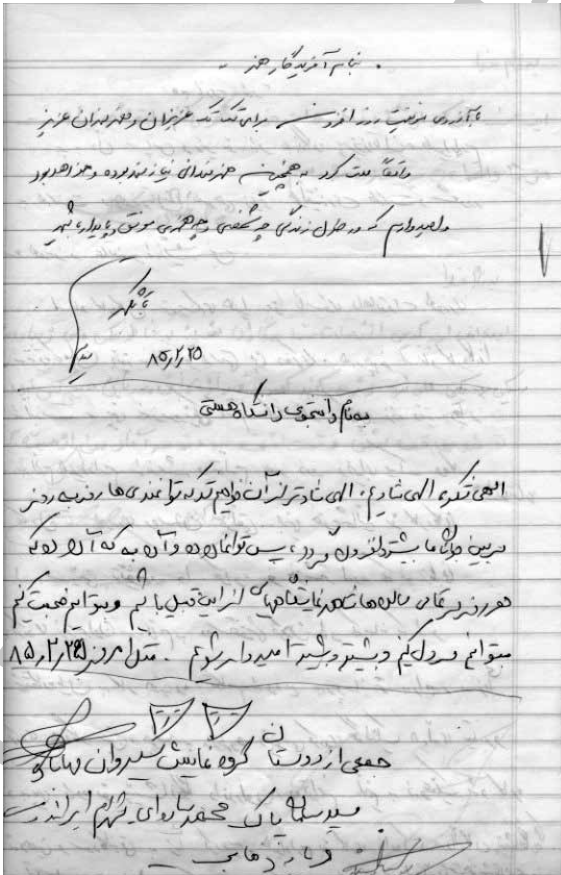 بنام آفریدگار هنر
با آرزوی موفقیت روز افزون برای تک تک عزیزان و هنرمندان عزیز
واقعاً کرد همچنین هنرمندانی نیازمند بوده و خواهد بود
و امیدوارم که در طول زندگی چه شخصی و چه هنری موفق و پایدار باشید
با تشکر
۸۵٫۲٫۲۵
به نام دانشجوی دانشگاه هستی
الهی شکرت الهی شادیم، الهی شادتر از آن خواهیم شد که توانمندی‌ها روز به روز
در بین جوانان ما بیشتر افزون گردد، پس توانمان ده و آن به که آن ده که
هر روز در تمامی سال‌ها شاهد نمایشگاههای از این قبیل باشیم و بتوانیم صحبت کنیم
بتوانیم درد دل کنیم و بیشتر و بیشتر امیدوار شویم. مثل امروز ۸۵٫۲٫۲۵
جمعی از دوستان گروه نمایش سیروان
سید پاک محمد شهرام ایراندوست